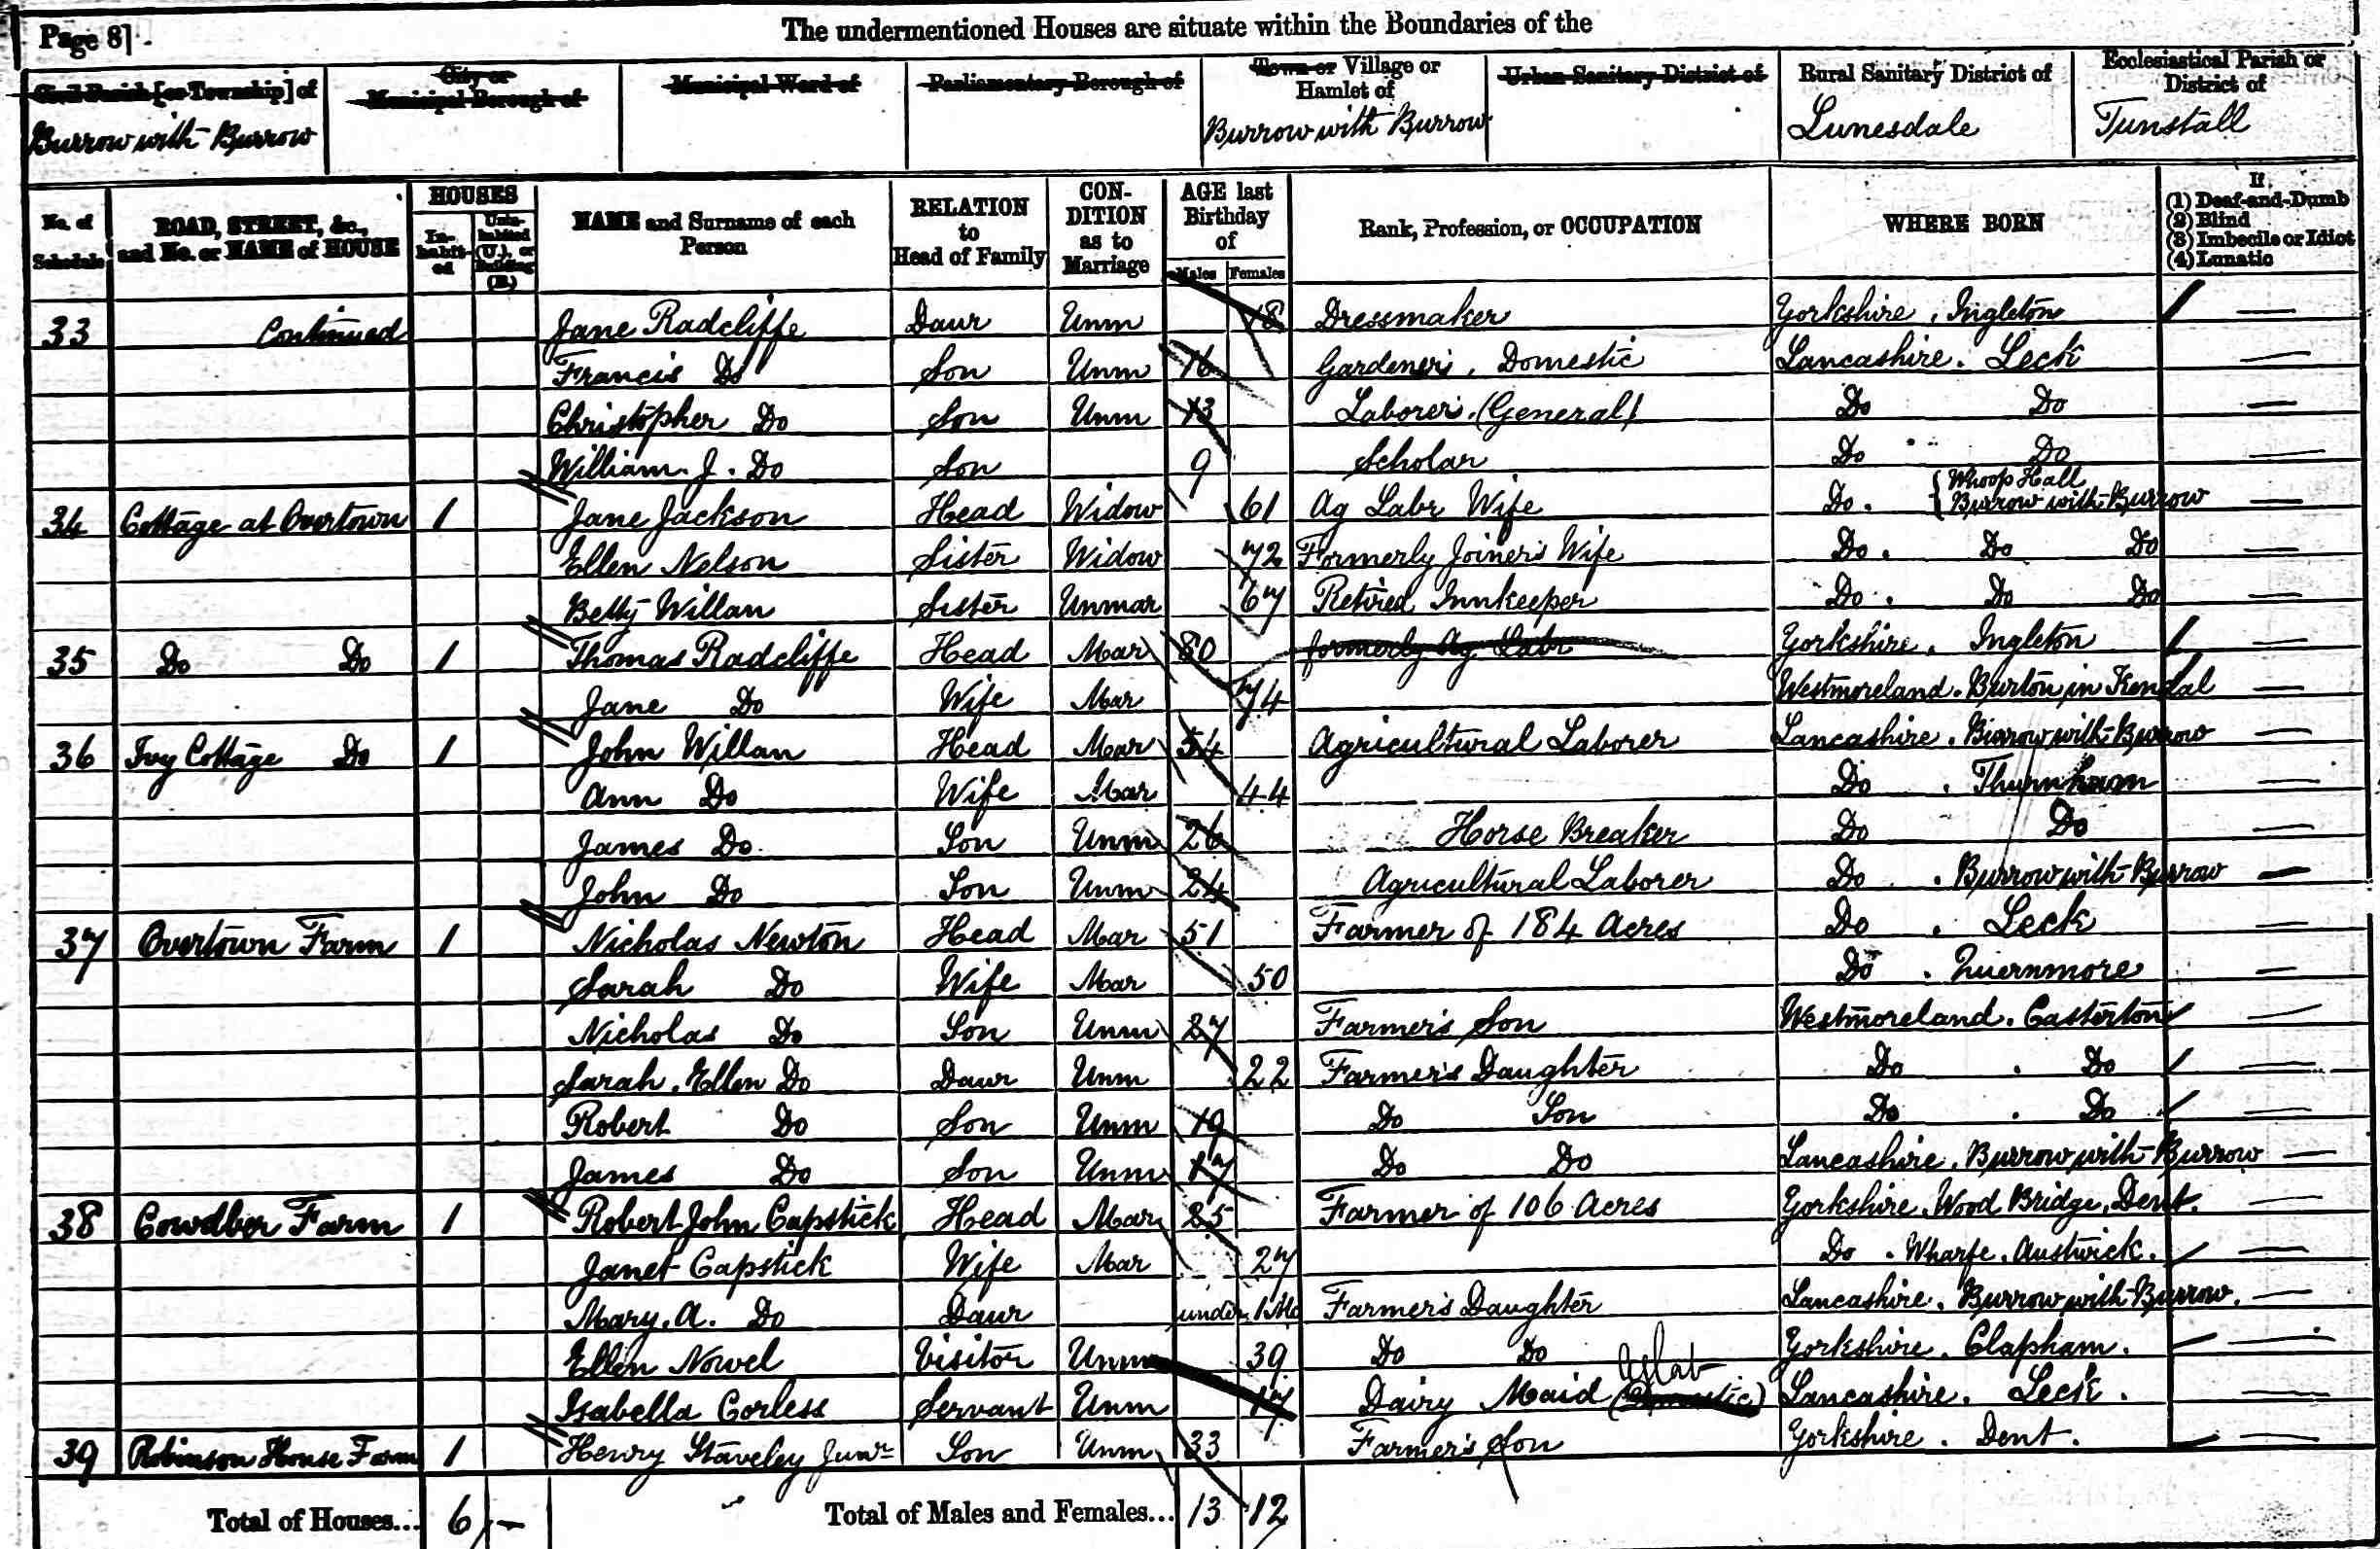 Page 8]
The undermentioned Houses are situate within the Boundaries of the
Civil Parish [or Township] of
City or Municipal Borough of
Municipal Ward of
Parliamentary Borough of
Town or Village or Hamlet of
Urban Sanitary District of
Rural Sanitary District of
Ecclesiastical Parish or District of
Burrow with Burrow
Burrow with Burrow
Lunesdale
Tunstall
No. of Schedule
ROAD, STREET, &c., and No. or NAME of HOUSE
HOUSES
Inhabited
Uninhabited (U.), or Building (B.)
NAME and Surname of each Person
RELATION to Head of Family
CONDITION as to Marriage
AGE last Birthday of
Males
Females
Rank, Profession, or OCCUPATION
WHERE BORN
If
(1) Deaf-and-Dumb
(2) Blind
(3) Imbecile or Idiot
(4) Lunatic
33 Continued Jane Radcliffe Daur Unm 18 Dressmaker Yorkshire, Ingleton —
Francis Do Son Unm 16 Gardener, Domestic Lancashire. Leck —
Christopher Do Son Unm 13 Laborer. (General) Do Do —
William. J. Do Son 9 Scholar Do Do —
34 Cottage at Overtown 1 Jane Jackson Head Widow 61 Ag Labr Wife Do. { Whoop Hall Burrow with Burrow —
Ellen Nelson Sister Widow 72 Formerly Joiner's Wife Do. Do Do —
Betty Willan Sister Unmar 67 Retired Innkeeper Do. Do Do —
35 Do Do 1 Thomas Radcliffe Head Mar 80 formerly Ag Labr Yorkshire. Ingleton —
Jane Do Wife Mar 74 Westmoreland. Burton in Kendal —
36 Ivy Cottage Do 1 John Willan Head Mar 54 Agricultural Laborer Lancashire. Burrow with Burrow —
Ann Do Wife Mar 44 Do. Thurnham —
James Do Son Unm 26 Horse Breaker Do Do —
John Do Son Unm 24 Agricultural Laborer Do. Burrow with Burrow —
37 Overtown Farm 1 Nicholas Newton Head Mar 51 Farmer of 184 Acres Do. Leck —
Sarah Do Wife Mar 50 Do. Quernmore —
Nicholas Do Son Unm 27 Farmer's Son Westmoreland. Casterton —
Sarah. Ellen Do Daur Unm 22 Farmer's Daughter Do. Do —
Robert Do Son Unm 19 Do Son Do. Do —
James Do Son Unm 17 Do Do Lancashire. Burrow with Burrow —
38 Cowdber Farm 1 Robert John Capstick Head Mar 25 Farmer of 106 Acres Yorkshire. Wood Bridge, Dent. —
Janet Capstick Wife Mar 27 Do. Wharfe. Austwick. —
Mary. A. Do Daur under 1 Mo Farmer's Daughter Lancashire. Burrow with Burrow. —
Ellen Nowel Visitor Unm 39 Do Do Yorkshire. Clapham. —
Isabella Corless Servant Unm 17 Dairy Maid (Domestic) Ag Lab Lancashire. Leck. —
39 Robinson House Farm 1 Henry Staveley Junr Son Unm 33 Farmer's Son Yorkshire. Dent. —
Total of Houses... 6 —
Total of Males and Females... 13 12